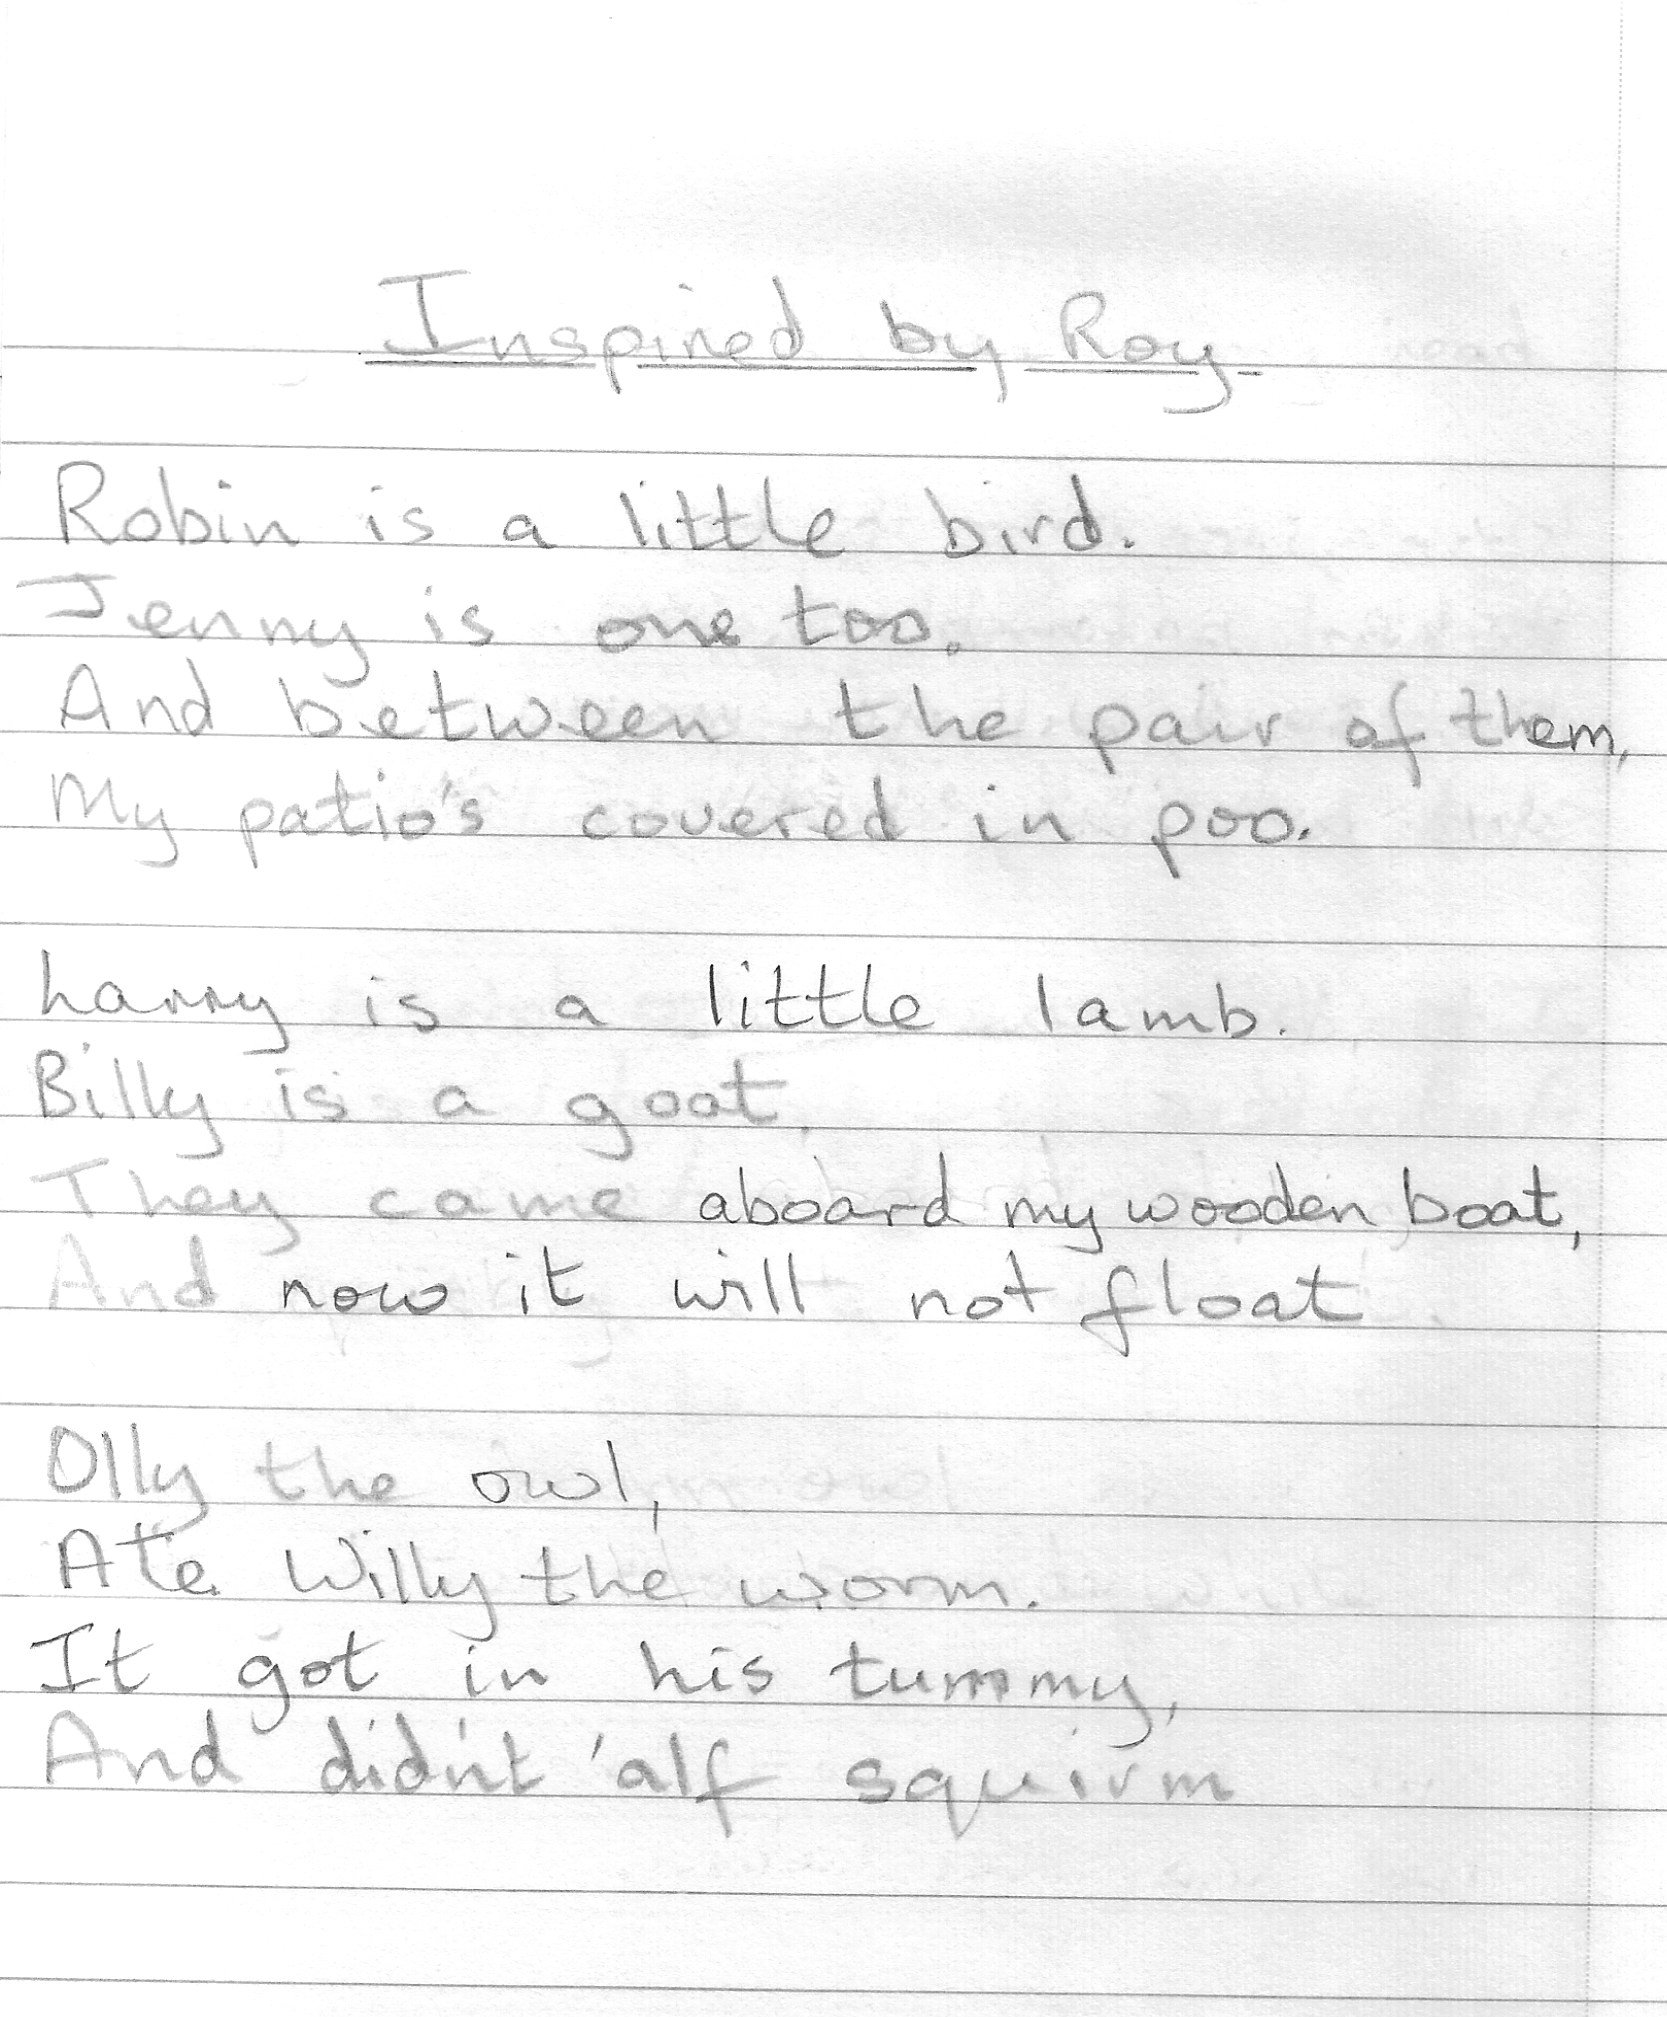 Inspired by Roy
Robin is a little bird.
Jenny is one too.
And between the pair of them,
My patio's covered in poo.
Larry is a little lamb.
Billy is a goat.
They came aboard my wooden boat,
And now it will not float.
Olly the owl,
Ate Willy the worm.
It got in his tummy,
And didn't 'alf squirm